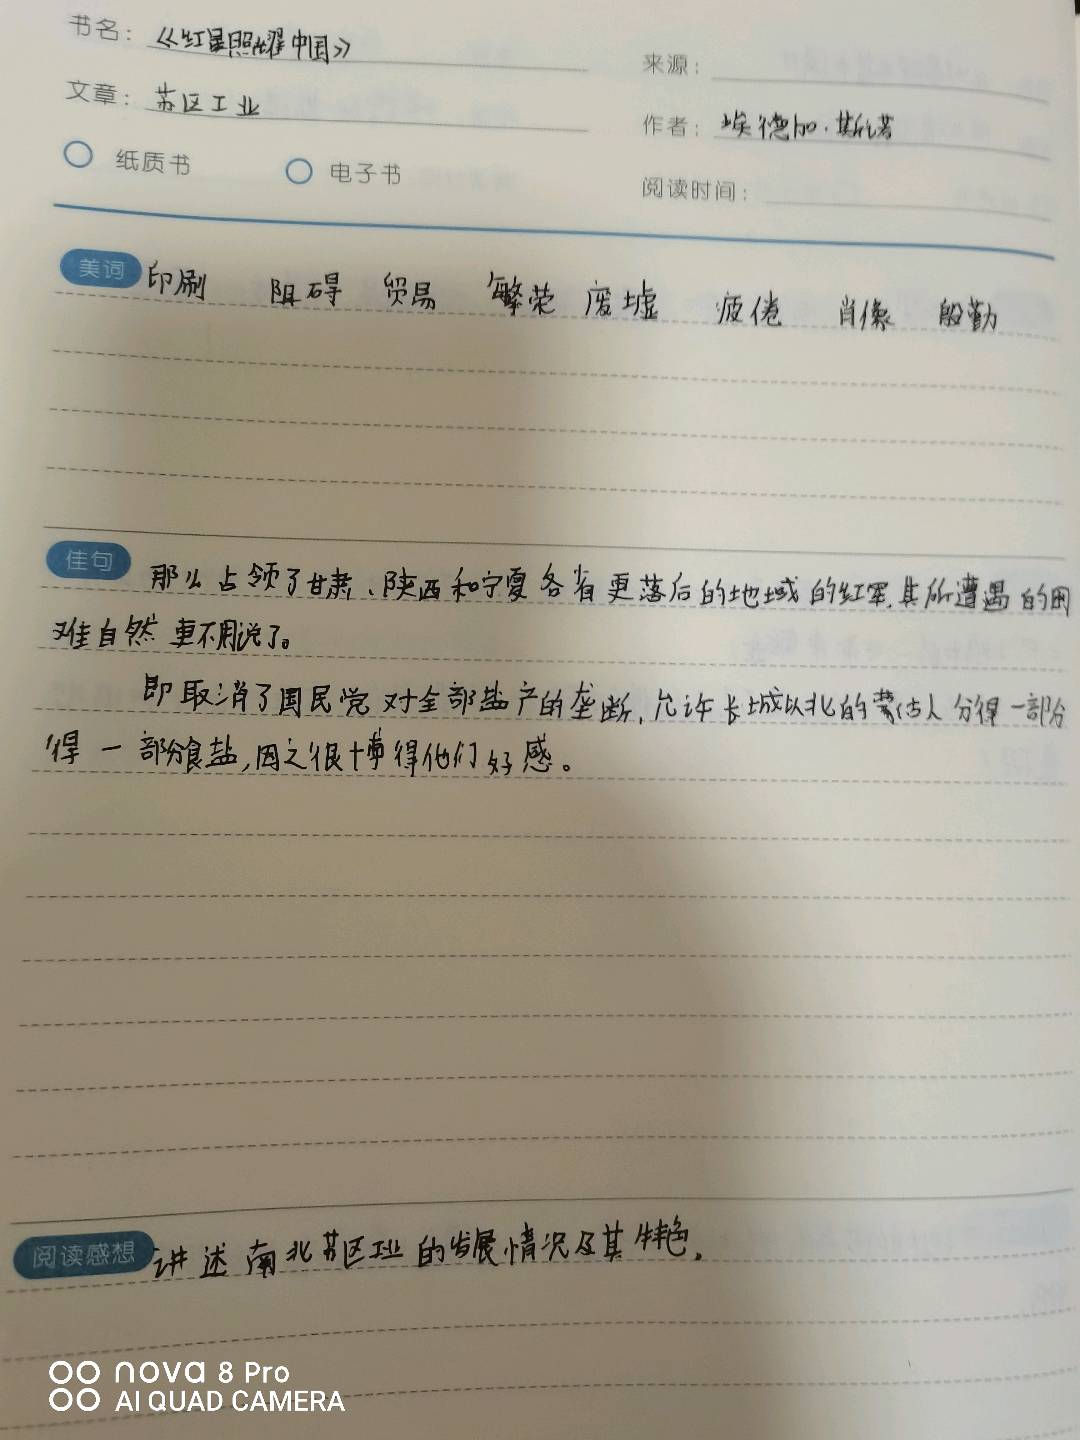 书名：《红星照耀中国》
来源：
文章：苏区工业
作者：埃德加·斯诺
纸质书 电子书
阅读时间：
美词 印刷 阻碍 贸易 繁荣 废墟 疲倦 肖像 殷勤
佳句 那么占领了甘肃、陕西和宁夏各省更落后的地域的红军,其所遭遇的困
难自然更不用说了。
即取消了国民党对全部盐产的垄断,允许长城以北的蒙古人分得一部分
得一部分食盐,因之很博得他们好感。
阅读感想 讲述南北苏区工业的发展情况及其特色.
nova 8 Pro
AI QUAD CAMERA